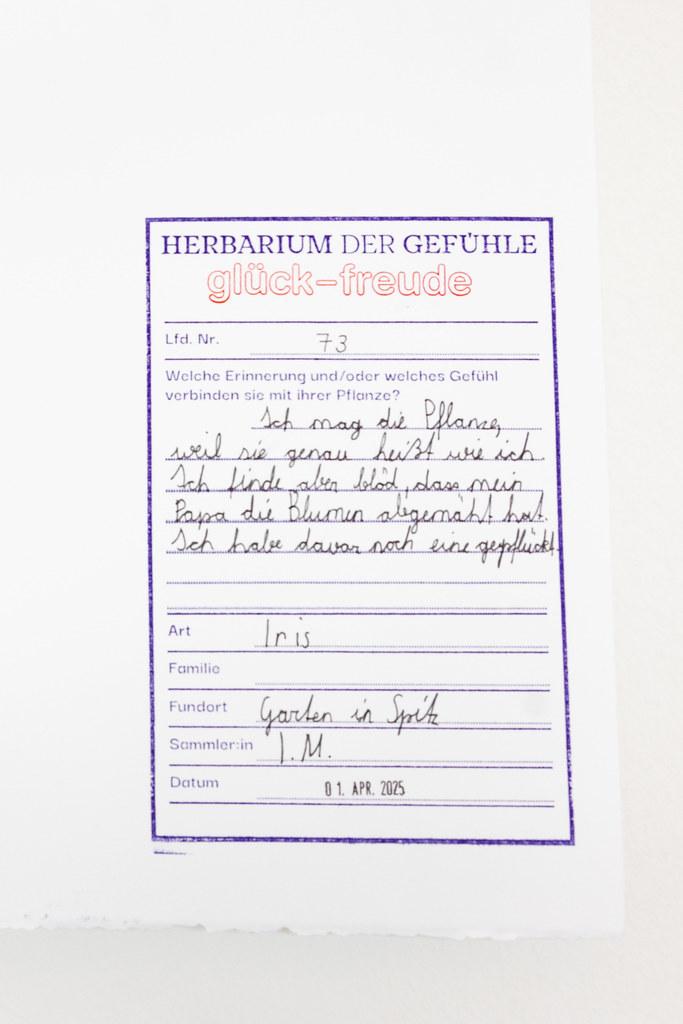 HERBARIUM DER GEFÜHLE
glück-freude
Lfd. Nr. 73
Welche Erinnerung und/oder welches Gefühl
verbinden sie mit ihrer Pflanze?
Ich mag die Pflanze,
weil sie genau heißt wie ich.
Ich finde aber blöd, dass mein
Papa die Blumen abgemäht hat.
Ich habe davor noch eine gepflückt.
Art Iris
Familie
Fundort Garten in Spitz
Sammler:in I.M.
Datum 01. APR. 2025